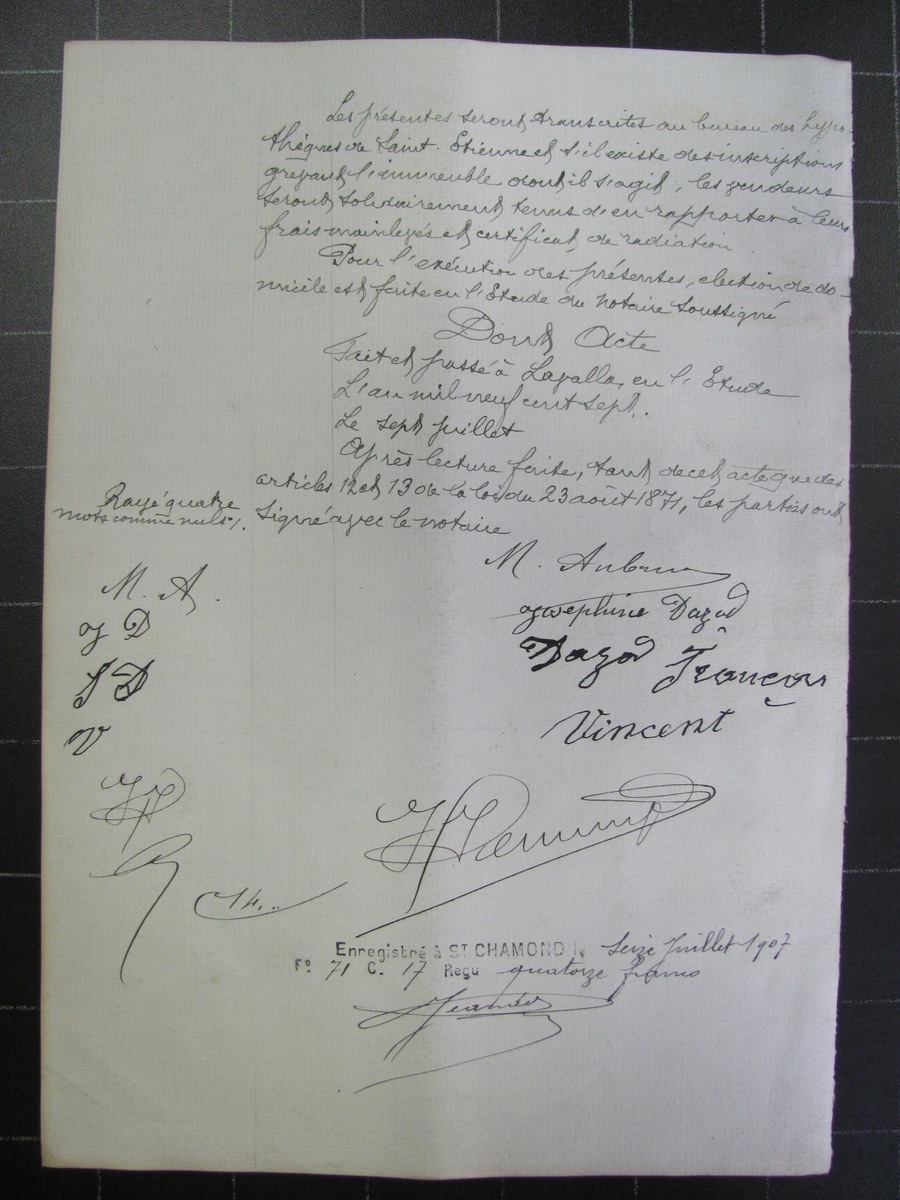 Les présentes seront transcrites au bureau des hypo-
thèques de Saint-Etienne et s'il existe des inscriptions
grevant l'immeuble dont il s'agit, les vendeurs
seront solidairement tenus d'en rapporter à leurs
frais mainlevés et certificat de radiation.
Pour l'exécution des présentes, election de do-
micile est faite en l'Etude du notaire soussigné
Dont Acte
Fait et passé à Lavalla, en l'Etude
L'an mil neuf cent sept.
Le sept juillet
Après lecture faite, tant de cet acte que des
articles 12 et 13 de la loi du 23 août 1871, les parties ont
signé avec le notaire
Rayé quatre
mots comme nuls /.
M. A.
J D
F D
V
M.
Josephine Dazod
Dazod François
Vincent
14..
Enregistré à ST CHAMOND le seize juillet 1907
Fo 71 C. 17 Reçu quatorze francs